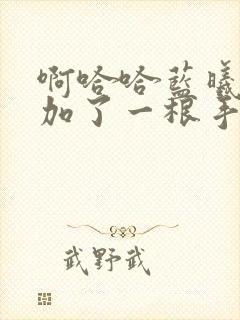 啊哈哈蓝曦
加了一根手
武野武